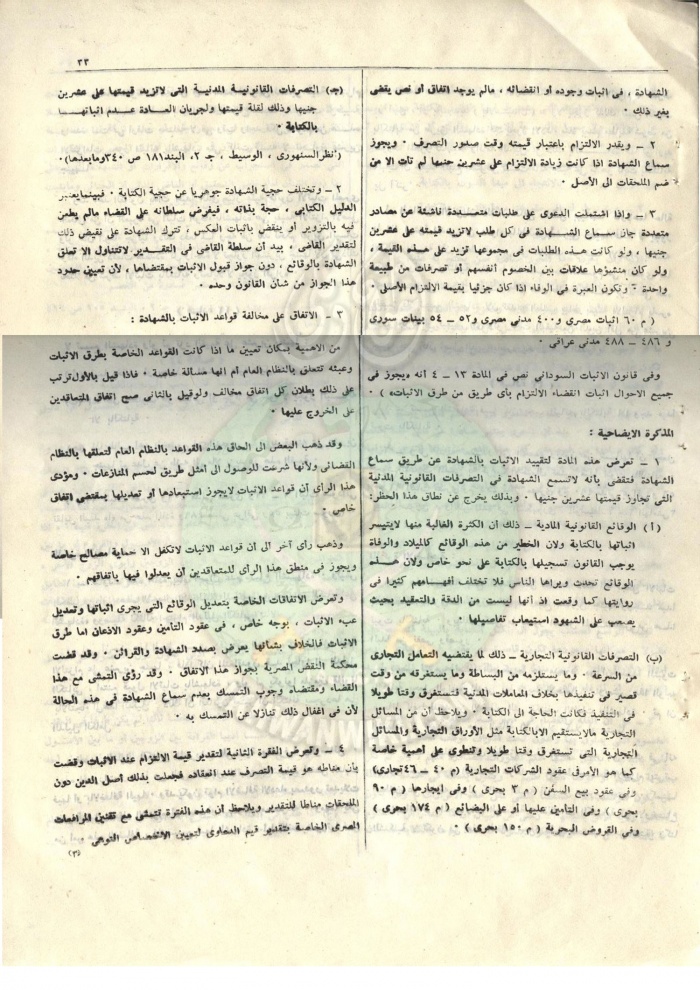 ٣٣
الشهادة ، فى اثبات وجوده أو انقضائه ، مالم يوجد اتفاق أو نص يقضى
بغير ذلك ٠
٢ ــ ويقدر الالتزام باعتبار قيمته وقت صدور التصرف ٠ ويجوز
سماع الشهادة اذا كانت زيادة الالتزام على عشرين جنيها لم تأت الا من
ضم الملحقات الى الأصل ٠
٣ ــ واذا اشتملت الدعوى على طلبات متعددة ناشئة عن مصادر
متعددة جاز سماع الشهادة فى كل طلب لاتزيد قيمته على عشرين
جنيها ، ولو كانت هذه الطلبات فى مجموعها تزيد على هذه القيمة ،
ولو كان منشؤها علاقات بين الخصوم أنفسهم أو تصرفات من طبيعة
واحدة ٠ وتكون العبرة فى الوفاء اذا كان جزئيا بقيمة الالتزام الأصلى ٠
( م ٦٠ اثبات مصرى و٤٠٠ مدنى مصرى و٥٢ ــ ٥٤ بينات سورى
و ٤٨٦ ــ ٤٨٨ مدنى عراقى ٠
وفى قانون الاثبات السودانى نص فى المادة ١٣ ــ ٤ أنه يجوز فى
جميع الاحوال اثبات انقضاء الالتزام بأى طريق من طرق الاثبات ) ٠
المذكرة الايضاحية :
١ ــ تعرض هذه المادة لتقييد الاثبات بالشهادة عن طريق سماع
الشهادة فتقضى بأنه لاتسمع الشهادة فى التصرفات القانونية المدنية
التى تجاوز قيمتها عشرين جنيها ٠ وبذلك يخرج عن نطاق هذا الحظر:
(أ) الوقائع القانونية المادية ــ ذلك أن الكثرة الغالبة منها لايتيسر
اثباتها بالكتابة ولان الخطير من هذه الوقائع كالميلاد والوفاة
يوجب القانون تسجيلها بالكتابة على نحو خاص ولان هذه
الوقائع تحدث ويراها الناس فلا تختلف أفهامهم كثيرا فى
روايتها كما وقعت اذ أنها ليست من الدقة والتعقيد بحيث
يصعب على الشهود استيعاب تفاصيلها ٠
(ب) التصرفات القانونية التجارية ــ ذلك لما يقتضيه التعامل التجارى
من السرعة ٠ وما يستلزمه من البساطة وما يستغرقه من وقت
قصير فى تنفيذها بخلاف المعاملات المدنية فتستغرق وقتا طويلا
فى التنفيذ فكانت الحاجة الى الكتابة ٠ ويلاحظ أن من المسائل
التجارية مالايستقيم الابالكتابة مثل الأوراق التجارية والمسائل
التجارية التى تستغرق وقتا طويلا وتنطوى على أهمية خاصة
كما هو الأمرق عقود الشركات التجارية (م ٤٠ ــ ٤٦تجارى)
وفى عقود بيع السفن ( م ٣ بحرى ) وفى ايجارها ( م ٩٠
بحرى ) وفى التأمين عليها أو على البضائع ( م ١٧٤ بحرى )
وفى القروض البحرية ( م ١٥٠ بحرى ) ٠
(جـ) التصرفات القانونيـة المدنيـة التى لاتزيد قيمتها على عشرين
جنيها وذلك لقلة قيمتها ولجريان العـادة عـدم اثباتهـا
بالكتابة ٠
(نظرالسنهورى ، الوسيط ، جـ ٢، البند١٨١ ص ٣٤٠ومابعدها) ٠
٢ ــ وتختلف حجية الشهادة جوهريا عن حجية الكتابة ٠ فبينمايعتبر
الدليل الكتابى ، حجة بذاته ، فيفرض سلطانه على القضاء مالم يطعن
فيه بالتزوير أو ينقض باثبات العكس ، تترك الشهادة على نقيض ذلك
لتقدير القاضى ، بيد أن سلطة القاضى فى التقـدير لاتتناول الا تعلق
الشهادة بالوقائع ، دون جواز قبول الاثبات بمقتضاها ، لأن تعيين حدود
هذا الجواز من شأن القانون وحده ٠
٣ ــ الاتفاق على مخالفة قواعد الاثبات بالشهادة :
من الاهمية بمكان تعيين ما اذا كانت القواعد الخاصة بطرق الاثبات
وعبئه تتعلق بالنظام العام أم انها مسألة خاصة ٠ فاذا قيل بالأول ترتب
على ذلك بطلان كل اتفاق مخالف ولوقيل بالثانى صح اتفاق المتعاقدين
على الخروج عليها ٠
وقد ذهب البعض الى الحاق هذه القواعد بالنظام العام لتعلقها بالنظام
القضائى ولأنها شرعت للوصول الى أمثل طريق لحسم المنازعات ٠ ومؤدى
هذا الرأى أن قواعد الاثبات لايجوز استبعادها أو تعديلها بمقتضى اتفاق
خاص ٠
وذهب رأى آخر الى أن قواعد الاثبات لاتكفل الا حماية مصالح خاصة
ويجوز فى منطق هذا الرأى للمتعاقدين أن يعدلوا فيها باتفاقهم ٠
وتعرض الاتفاقات الخاصة بتعديل الوقائع التى يجرى اثباتها وتعديل
عبء الاثبات ، بوجه خاص ، فى عقود التأمين وعقود الاذعان اما طرق
الاثبات فالخلاف بشأنها يعرض بصدد الشهادة والقرائن ٠ وقد قضت
محكمة النقض المصرية بجواز هذا الاتفاق ٠ وقد رؤى التمشى مع هذا
القضاء ومقتضاه وجوب التمسك بعدم سماع الشهادة فى هذه الحالة
لأن فى اغفال ذلك تنازلا عن التمسك به ٠
٤ ــ وتعرض الفقرة الثانية لتقدير قيمة الالتزام عند الاثبات وقضت
بأن مناطه هو قيمة التصرف عند انعقاده فجعلت بذلك أصل الدين دون
الملحقات مناطا للتقدير ويلاحظ أن هذه الفترة تتمشى مع تقنين المرافعات
المصرى الخاصة بتقدير قيم الدعاوى لتعيين الاختصاص النوعى ٠